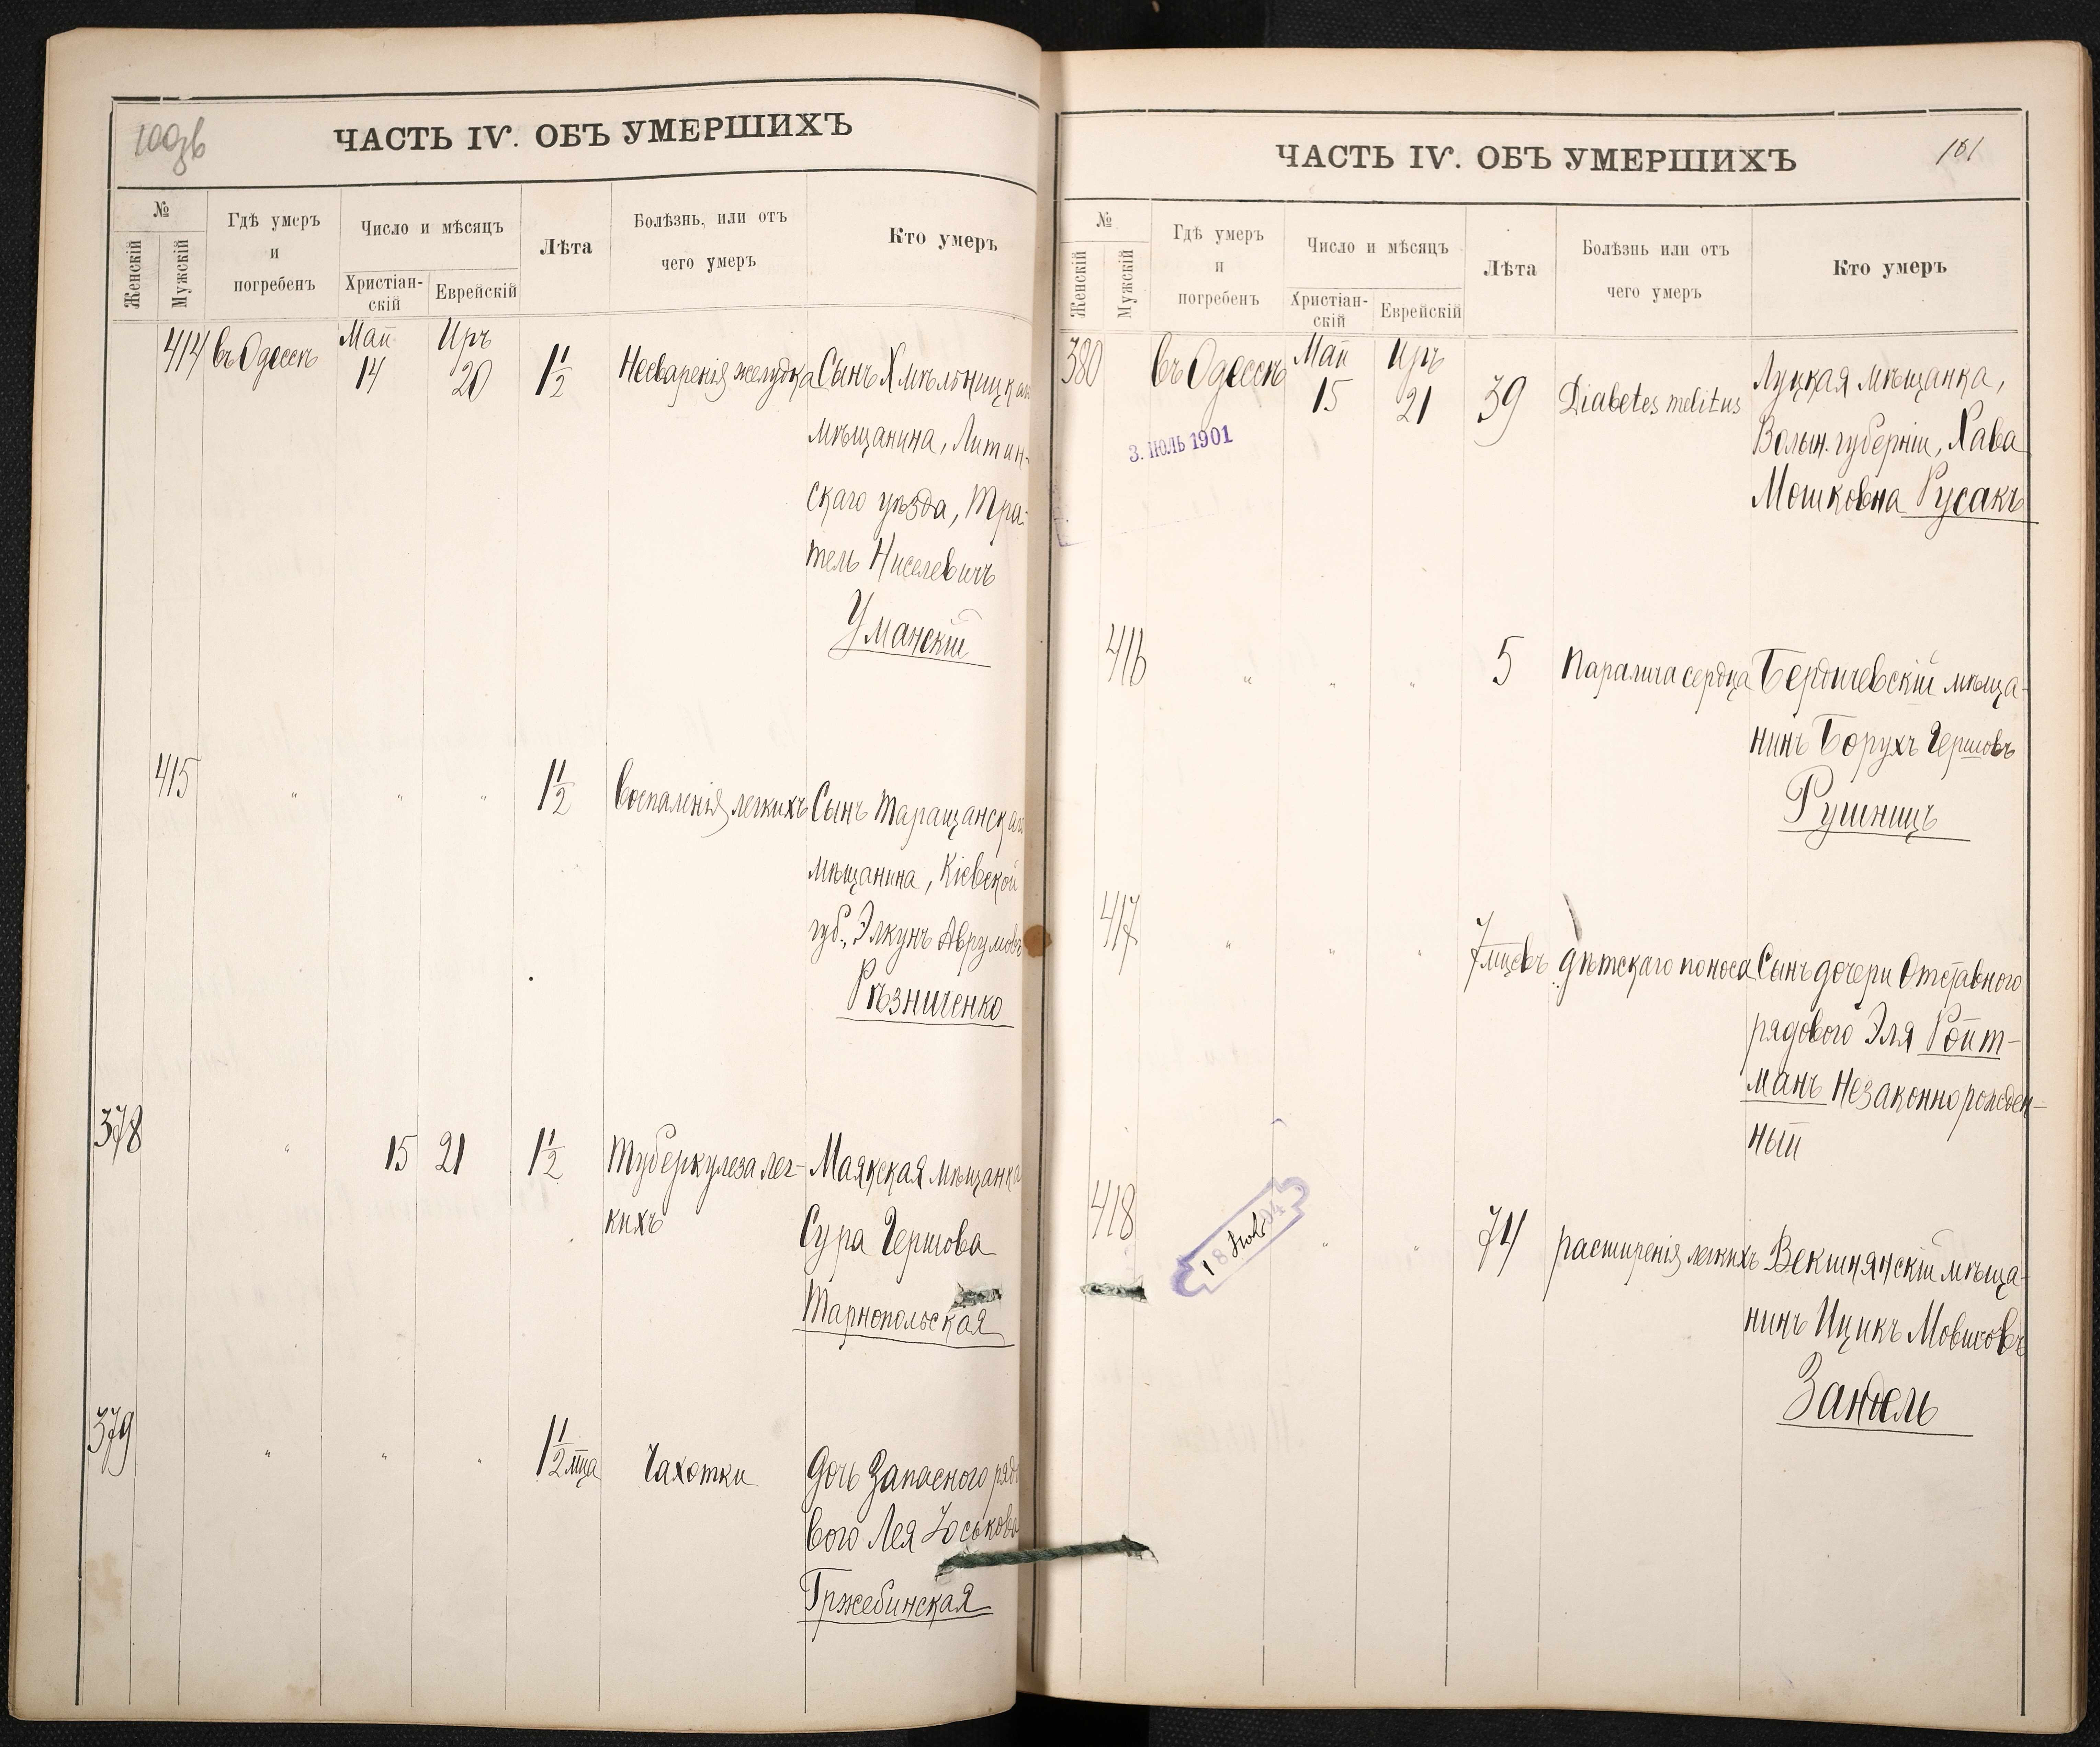 100об
ЧАСТЬ IV. ОБЪ УМЕРШИХЪ
№
Женскій
Мужскій
Гдѣ умеръ
и
погребенъ
Число и мѣсяцъ
Христіан-
скій
Еврейскій
Лѣта
Болѣзнь, или отъ
чего умеръ
Кто умеръ
414 въ Одессѣ Май 14 Иръ 20 1 1/2 Несваренія желудка Сынъ Хмѣльницкаго
мѣщанина, Литин-
скаго уѣзда, Тра-
тель Нисел​евичъ
Уманскій
415 " " " 1 1/2 Воспаленія легкихъ Сынъ Таращанскаго
мѣщанина, Кіевской
губ., Элкунъ Аврумовъ
Рѣзниченко
378 " 15 21 1 1/2 Туберкулеза лег- Маякская мѣщанка
кихъ Сура Гершова
Тарнопольская
379 " " " 1 1/2 мца Чахотки Дочь Запасного рядо
вого Лея Юськова
Гржебинская
ЧАСТЬ IV. ОБЪ УМЕРШИХЪ
101
№
Женскій
Мужскій
Гдѣ умеръ
и
погребенъ
Число и мѣсяцъ
Христіан-
скій
Еврейскій
Лѣта
Болѣзнь или отъ
чего умеръ
Кто умеръ
380 въ Одессѣ Май 15 Иръ 21 39 Diabetes melitus Луцкая мѣщанка,
Волын. губерніи, Хава
Мошковна Русакъ
3. ИЮЛЬ 1901
416 " " " 5 Паралича сердца Бердичевскій мѣща-
нинъ Борухъ Гершовъ
Рушницъ
417 " " " 7 мцевъ Дѣтскаго поноса Сынъ дочери Отставного
рядового Эля Ройт-
манъ Незаконнорожден-
ный
418 " " 74 расширенія легкихъ Векшнянскій мѣща-
нинъ Ицикъ Мовшовъ
Зандель